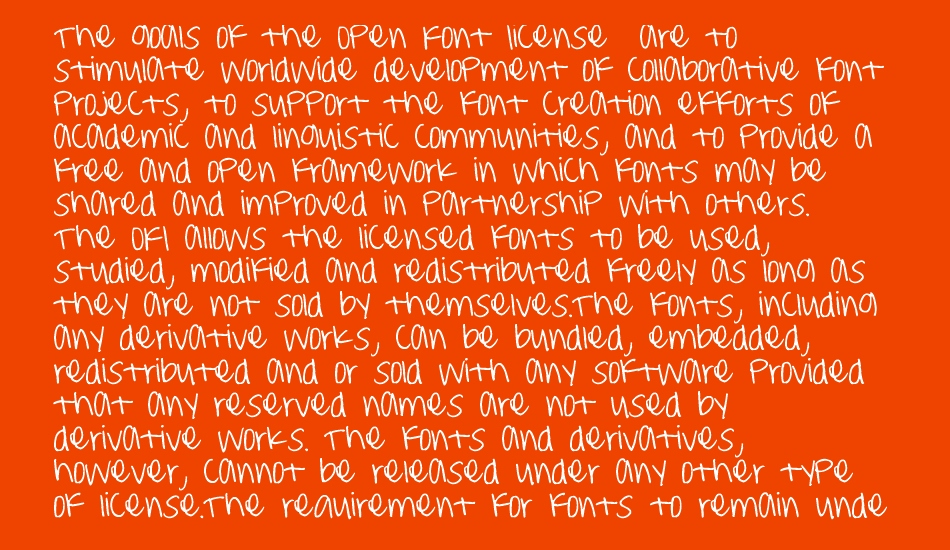 The goals of the Open Font License are to
stimulate worldwide development of collaborative font
projects, to support the font creation efforts of
academic and linguistic communities, and to provide a
free and open framework in which fonts may be
shared and improved in partnership with others.
The OFl allows the licensed fonts to be used,
studied, modified and redistributed freely as long as
they are not sold by themselves.The fonts, including
any derivative works, can be bundled, embedded,
redistributed and or sold with any software provided
that any reserved names are not used by
derivative works. The fonts and derivatives,
however, cannot be released under any other type
of license.The requirement for fonts to remain unde